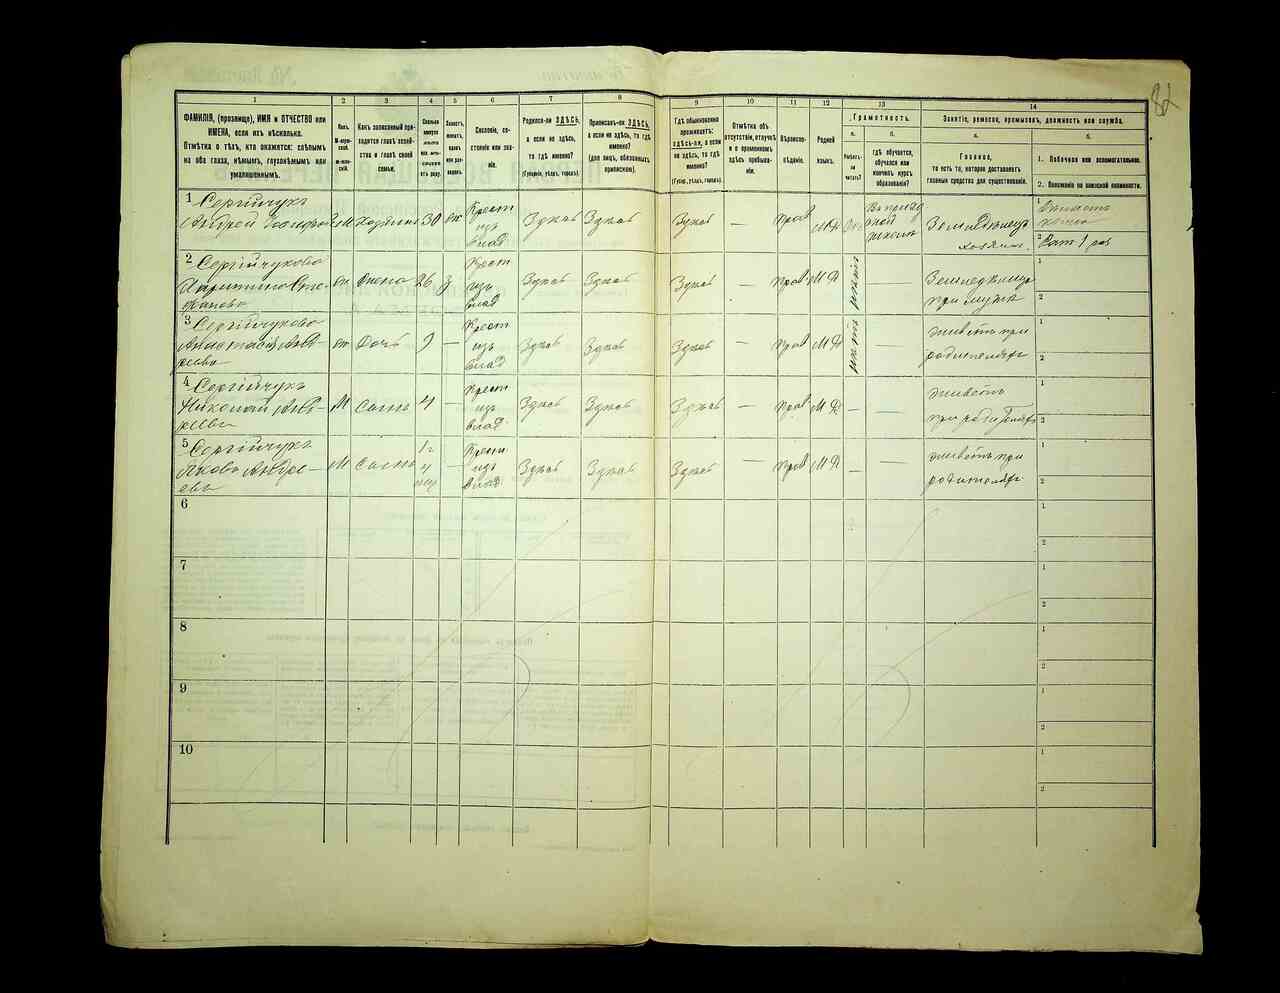 82
1 2 3 4 5 6 7 8 9 10 11 12 13 14
ФАМИЛІЯ, (прозвище), ИМЯ и ОТЧЕСТВО или
ИМЕНА, если ихъ нѣсколько.
Отмѣтка о тѣхъ, кто окажется: слѣпымъ
на оба глаза, нѣмымъ, глухонѣмымъ или
умалишеннымъ.
Полъ.
М-мужской.
Ж-женскій.
Какъ записанный при-
ходится главѣ хозяй-
ства и главѣ своей
семьи.
Сколько
минуло
лѣтъ
или мѣся-
цевъ
отъ роду.
Холостъ,
женатъ,
вдовъ
или раз-
веденъ.
Сословіе, со-
стояніе или зва-
ніе.
Родился-ли ЗДѢСЬ,
а если не здѣсь,
то гдѣ именно?
(Губернія, уѣздъ, городъ).
Приписанъ-ли ЗДѢСЬ,
а если не здѣсь, то гдѣ
именно?
(для лицъ, обязанныхъ
припиской).
Гдѣ обыкновенно
проживаетъ:
здѣсь-ли, а если
не здѣсь, то гдѣ
именно?
(Губер., уѣздъ, городъ).
Отмѣтка объ
отсутствіи, отлучкѣ
и о временномъ
здѣсь пребыва-
ніи.
Вѣроиспо-
вѣданіе.
Родной
языкъ.
Грамотность.
а.
Умѣетъ-
ли
читать?
б.
гдѣ обучается,
обучался или
кончилъ курсъ
образованія?
Занятіе, ремесло, промыселъ, должность или служба.
а.
Главное,
то есть то, которое доставляетъ
главныя средства для существованія.
б.
1. Побочное или вспомогательное.
2. Положеніе по воинской повинности.
1 Сергійчукъ
Андрей
М Хозяинъ 30 жн Крест
изъ
влад
Здѣсь Здѣсь Здѣсь — Прав МР
Земледѣлецъ
хозяин.
1
2
2 Сергійчукова
жн Жена 26 Крест
изъ
влад
Здѣсь Здѣсь Здѣсь — Прав МР —
Земледѣлецъ
при мужѣ
1
2
3 Сергійчукова
Анастасія
жн Дочь 9 — Крест
изъ
влад
Здѣсь Здѣсь Здѣсь — Прав МР —
живетъ при
родителяхъ
1
2
4 Сергійчукъ
Николай Анд-
реевъ
М Сынъ 4 — Крест
изъ
влад
Здѣсь Здѣсь Здѣсь — Прав МР — —
живетъ
при родителяхъ
1
2
5 Сергійчукъ
Яковъ Андре-
евъ
М Сынъ — Крест
изъ
влад
Здѣсь Здѣсь Здѣсь — Прав МР — —
живетъ при
родителяхъ
1
2
6
1
2
7
1
2
8
1
2
9
1
2
10
1
2